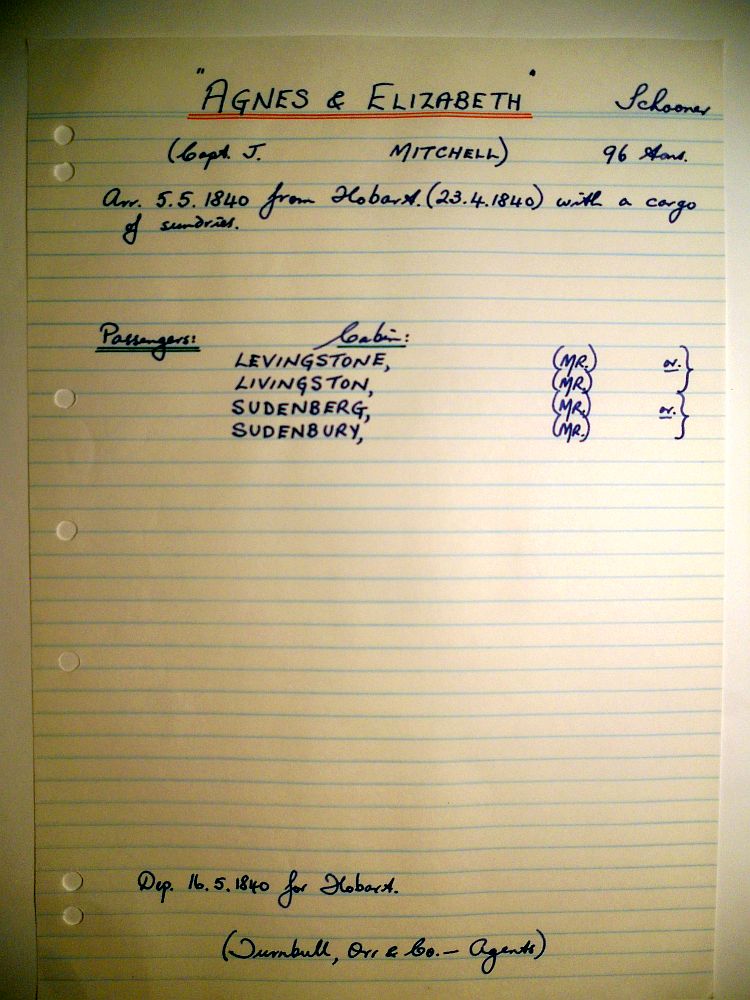 "AGNES & ELIZABETH" Schooner
(Capt. J. MITCHELL) 96 tons.
Arr. 5.5.1840 from Hobart. (23.4.1840) with a cargo
of sundries.
Passengers: Cabin:
LEVINGSTONE, (MR.) or. }
LIVINGSTON, (MR.)
SUDENBERG, (MR.) or. }
SUDENBURY, (MR.)
Dep. 16.5.1840 for Hobart.
(Turnbull, Orr & Co. — Agents)